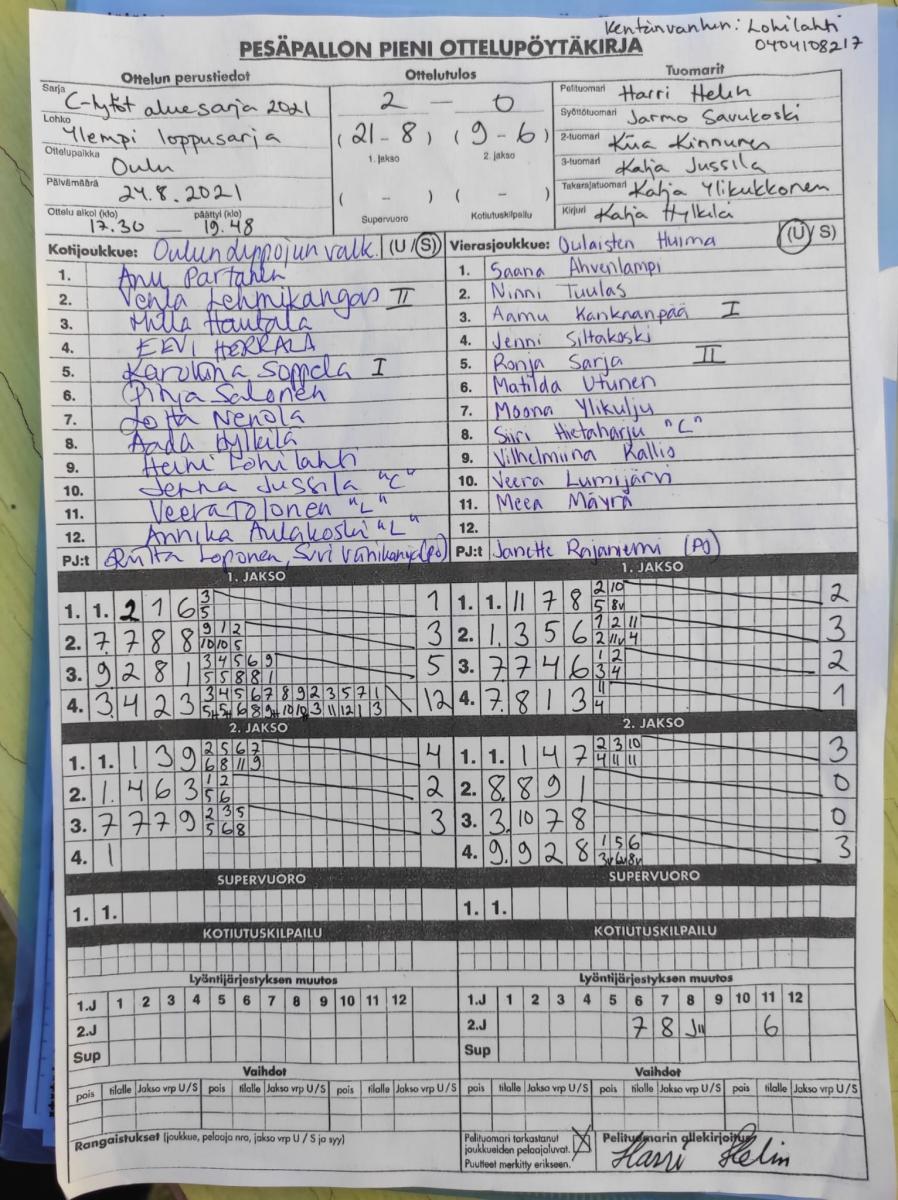 Kentänvanhin: Lohilahti
0404108217
PESÄPALLON PIENI OTTELUPÖYTÄKIRJA
Ottelun perustiedot
Sarja C-tytöt aluesarja 2021
Lohko Ylempi loppusarja
Ottelupaikka Oulu
Päivämäärä 24.8.2021
Ottelu alkoi (klo) 17.30 — päättyi (klo) 19.48
Ottelutulos
2 — 0
(21 - 8) (9 - 6)
1. jakso 2. jakso
( - ) ( - )
Supervuoro Kotiutuskilpailu
Tuomarit
Pelituomari Harri Helin
Syöttötuomari Jarmo Savukoski
2-tuomari Kiia Kinnunen
3-tuomari Katja Jussila
Takarajatuomari Katja Ylikukkonen
Kirjuri Katja Hylkilä
Kotijoukkue: Oulun Lippojun valk. (U / S)
1. Anu Partanen
2. Venla Lehmikangas II
3. Milla Hautala
4. EEVI HERRALA
5. Karoliina Soppela I
6. Pinja Salonen
7. Lotta Nenola
8. Aada Hylkilä
9. Heini Lohilahti
10. Jenna Jussila "C"
11. Veera Tolonen "L"
12. Annika Aulakoski "L"
PJ:t Loponen, (PO)
Vierasjoukkue: Oulaisten Huima (U / S)
1. Saana Ahvenlampi
2. Ninni Tuulas
3. Aamu Kanknanpää I
4. Jenni Siltakoski
5. Ronja Sarja II
6. Matilda Utunen
7. Moona Ylikulju
8. Siiri Hietaharju "C"
9. Vilhelmiina Kallio
10. Veera Lumijärvi
11. Meea Mäyrä
12.
PJ:t Janette Rajaniemi (PJ)
1. JAKSO
1. 1. 2 1 6 3 1
5
2. 7. 7 8 8 9 1 2 3
10 10 5
3. 9 2 8 1 3 4 5 6 9 5
5 5 8 8 1
4. 3. 4 2 3 3 4 5 6 7 8 9 2 3 5 7 1 12
1. JAKSO
1. 1. 11 7 8 2 10 2
5 8v
2. 1. 3 5 6 1 2 11 3
2 11v 4
3. 7. 7 4 6 1 2 2
3 4
4. 7. 8 1 3 11 1
4
2. JAKSO
1. 1. 1 3 9 2 5 6 7 4
6 8 11 9
2. 1. 4 6 3 1 2 2
5 6
3. 7 7 7 9 2 3 5 3
5 6 8
4. 1
2. JAKSO
1. 1. 1 4 7 2 3 10 3
4 11 11
2. 8. 8 9 1 0
3. 3. 10 7 8 0
4. 9. 9 2 8 1 5 6 3
3v 6v 8v
SUPERVUORO
1. 1.
SUPERVUORO
1. 1.
KOTIUTUSKILPAILU
KOTIUTUSKILPAILU
Lyöntijärjestyksen muutos
1.J 1 2 3 4 5 6 7 8 9 10 11 12
2.J
Sup
Lyöntijärjestyksen muutos
1.J 1 2 3 4 5 6 7 8 9 10 11 12
2.J 7 8 J11 6
Sup
Vaihdot
pois tilalle Jakso vrp U/S pois tilalle Jakso vrp U/S pois tilalle Jakso vrp U/S
Vaihdot
pois tilalle Jakso vrp U/S pois tilalle Jakso vrp U/S pois tilalle Jakso vrp U/S
Rangaistukset (joukkue, pelaaja nro, jakso vrp U / S ja syy)
Pelituomari tarkastanut
joukkueiden pelaajaluvat. X
Puutteet merkitty erikseen.
Pelituomarin allekirjoitus
Harri Helin